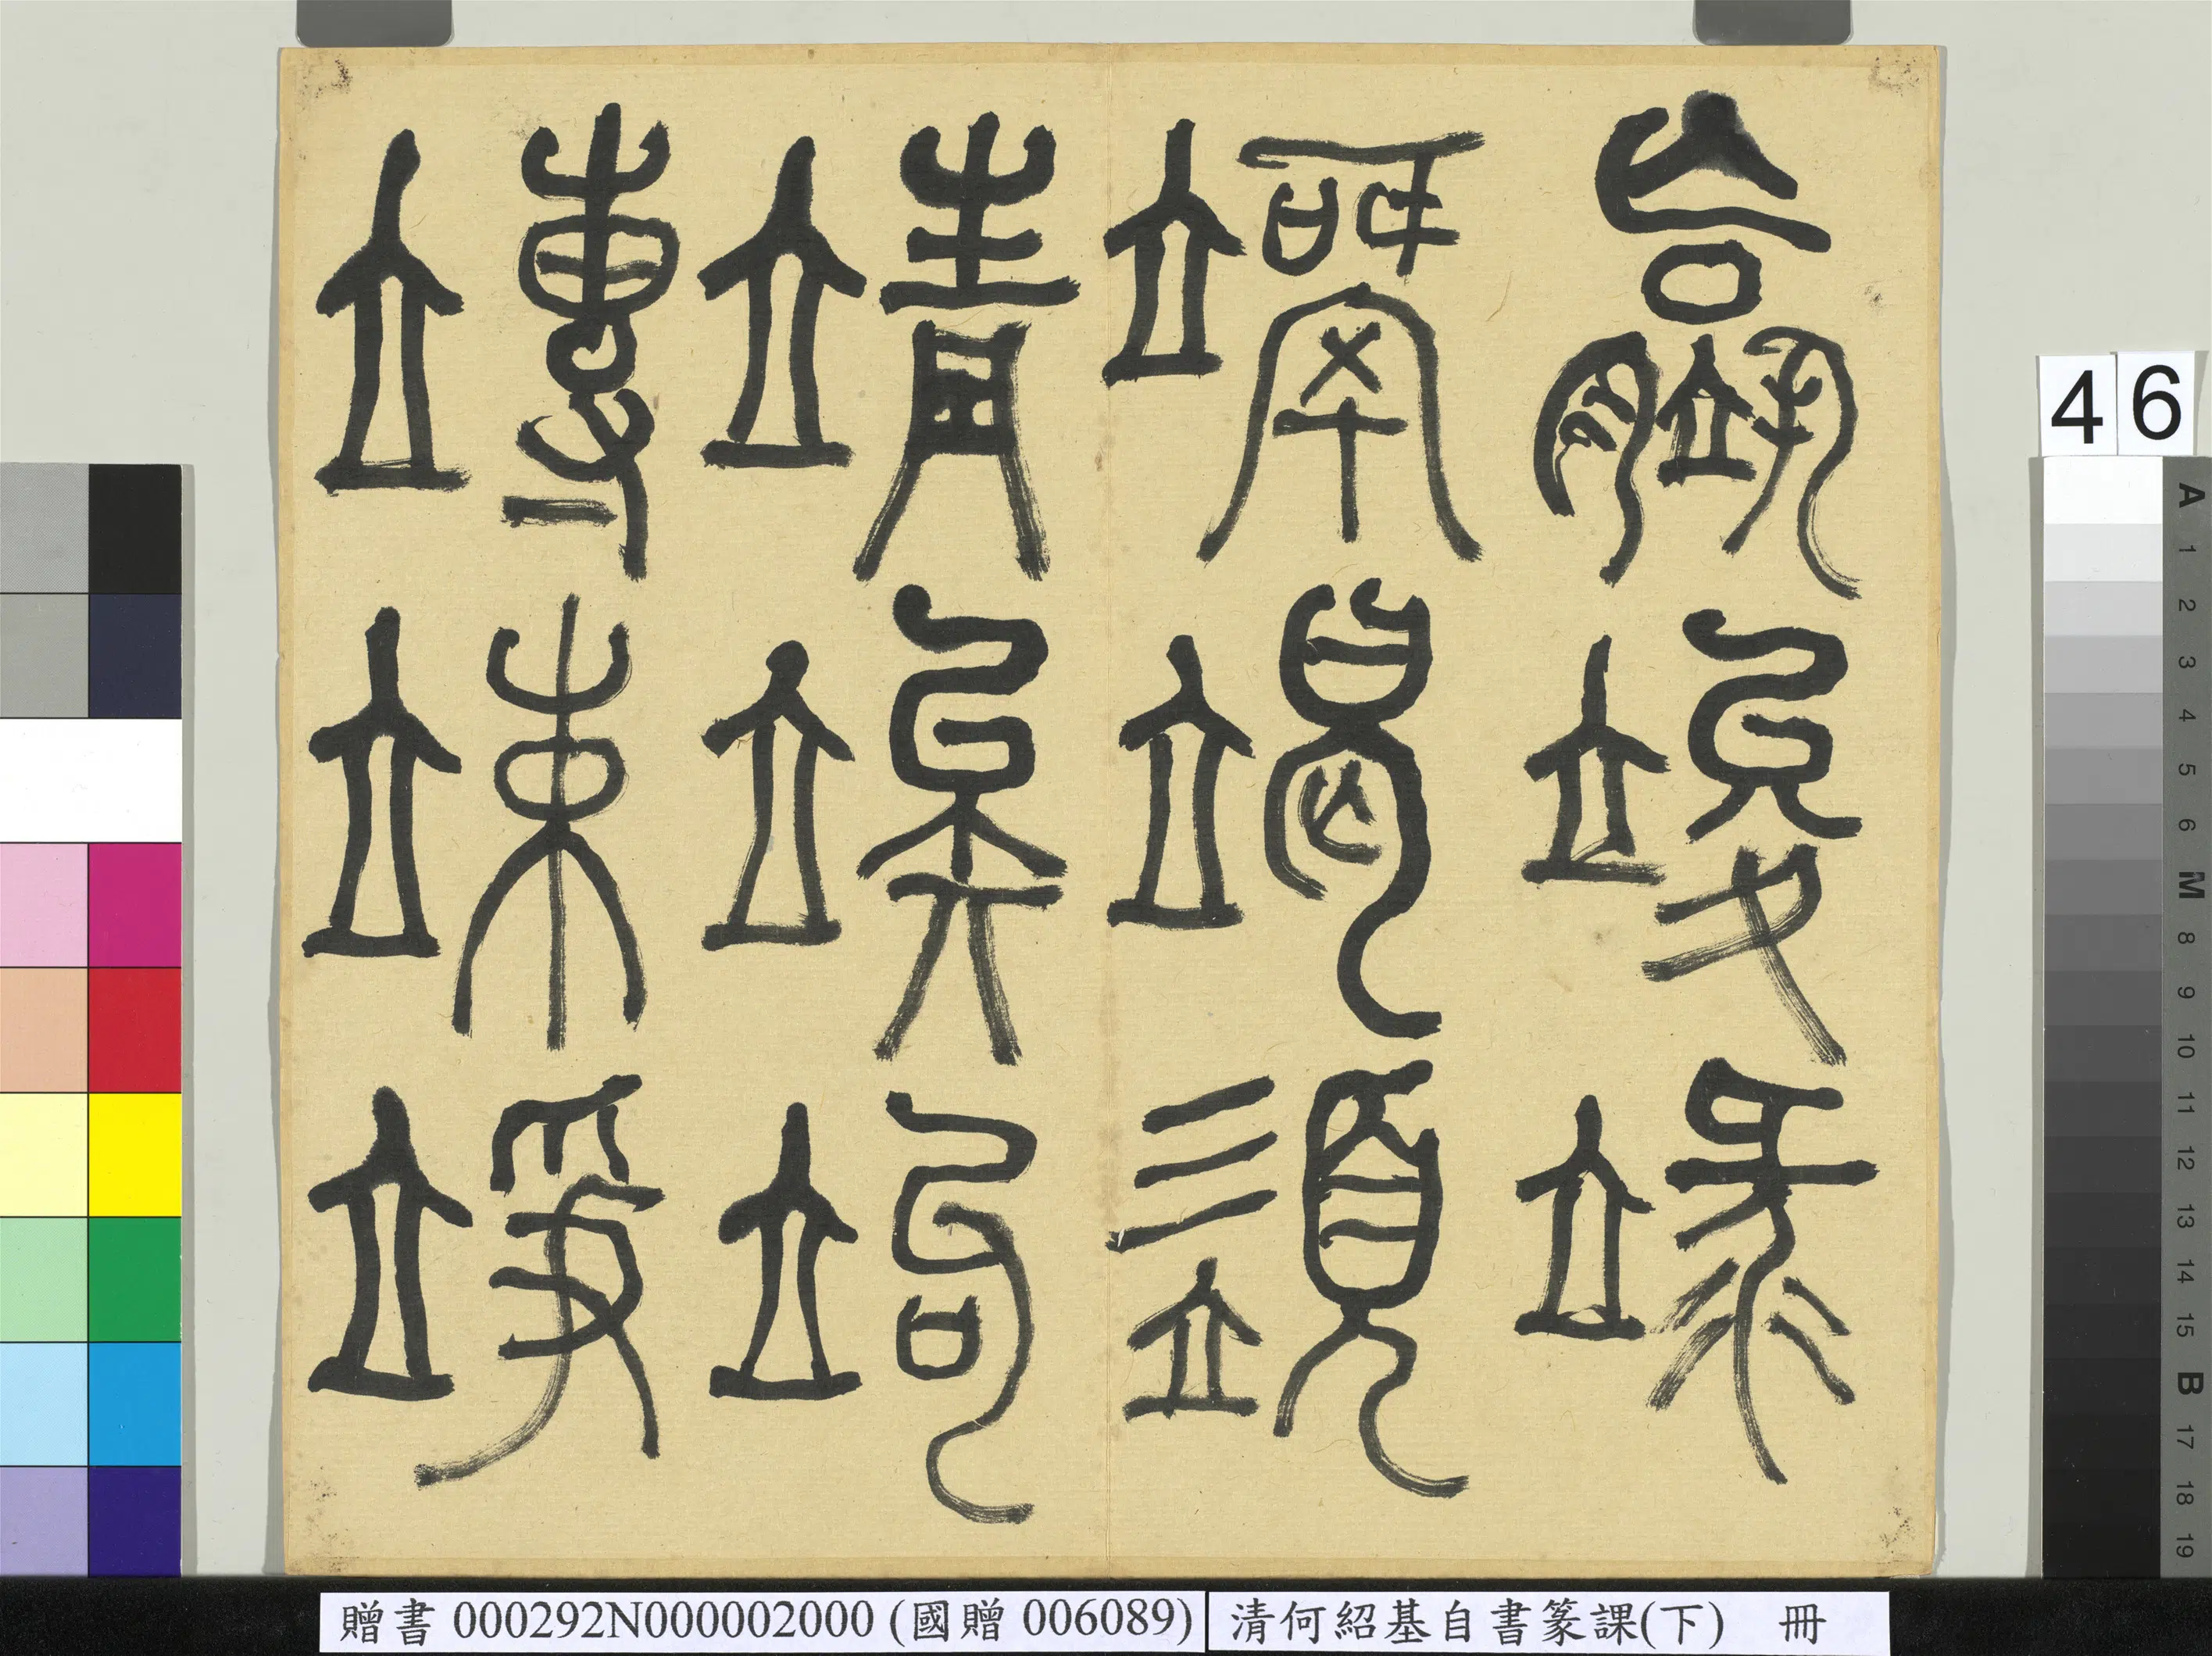 竱竦竫
靖竢竘
竵竭
竣
46
A 1 2 3 4 5 6 M 8 9 10 11 12 13 14 15 B 17 18 19
贈書 000292N000002000 (國贈 006089)
清何紹基自書篆課(下) 冊